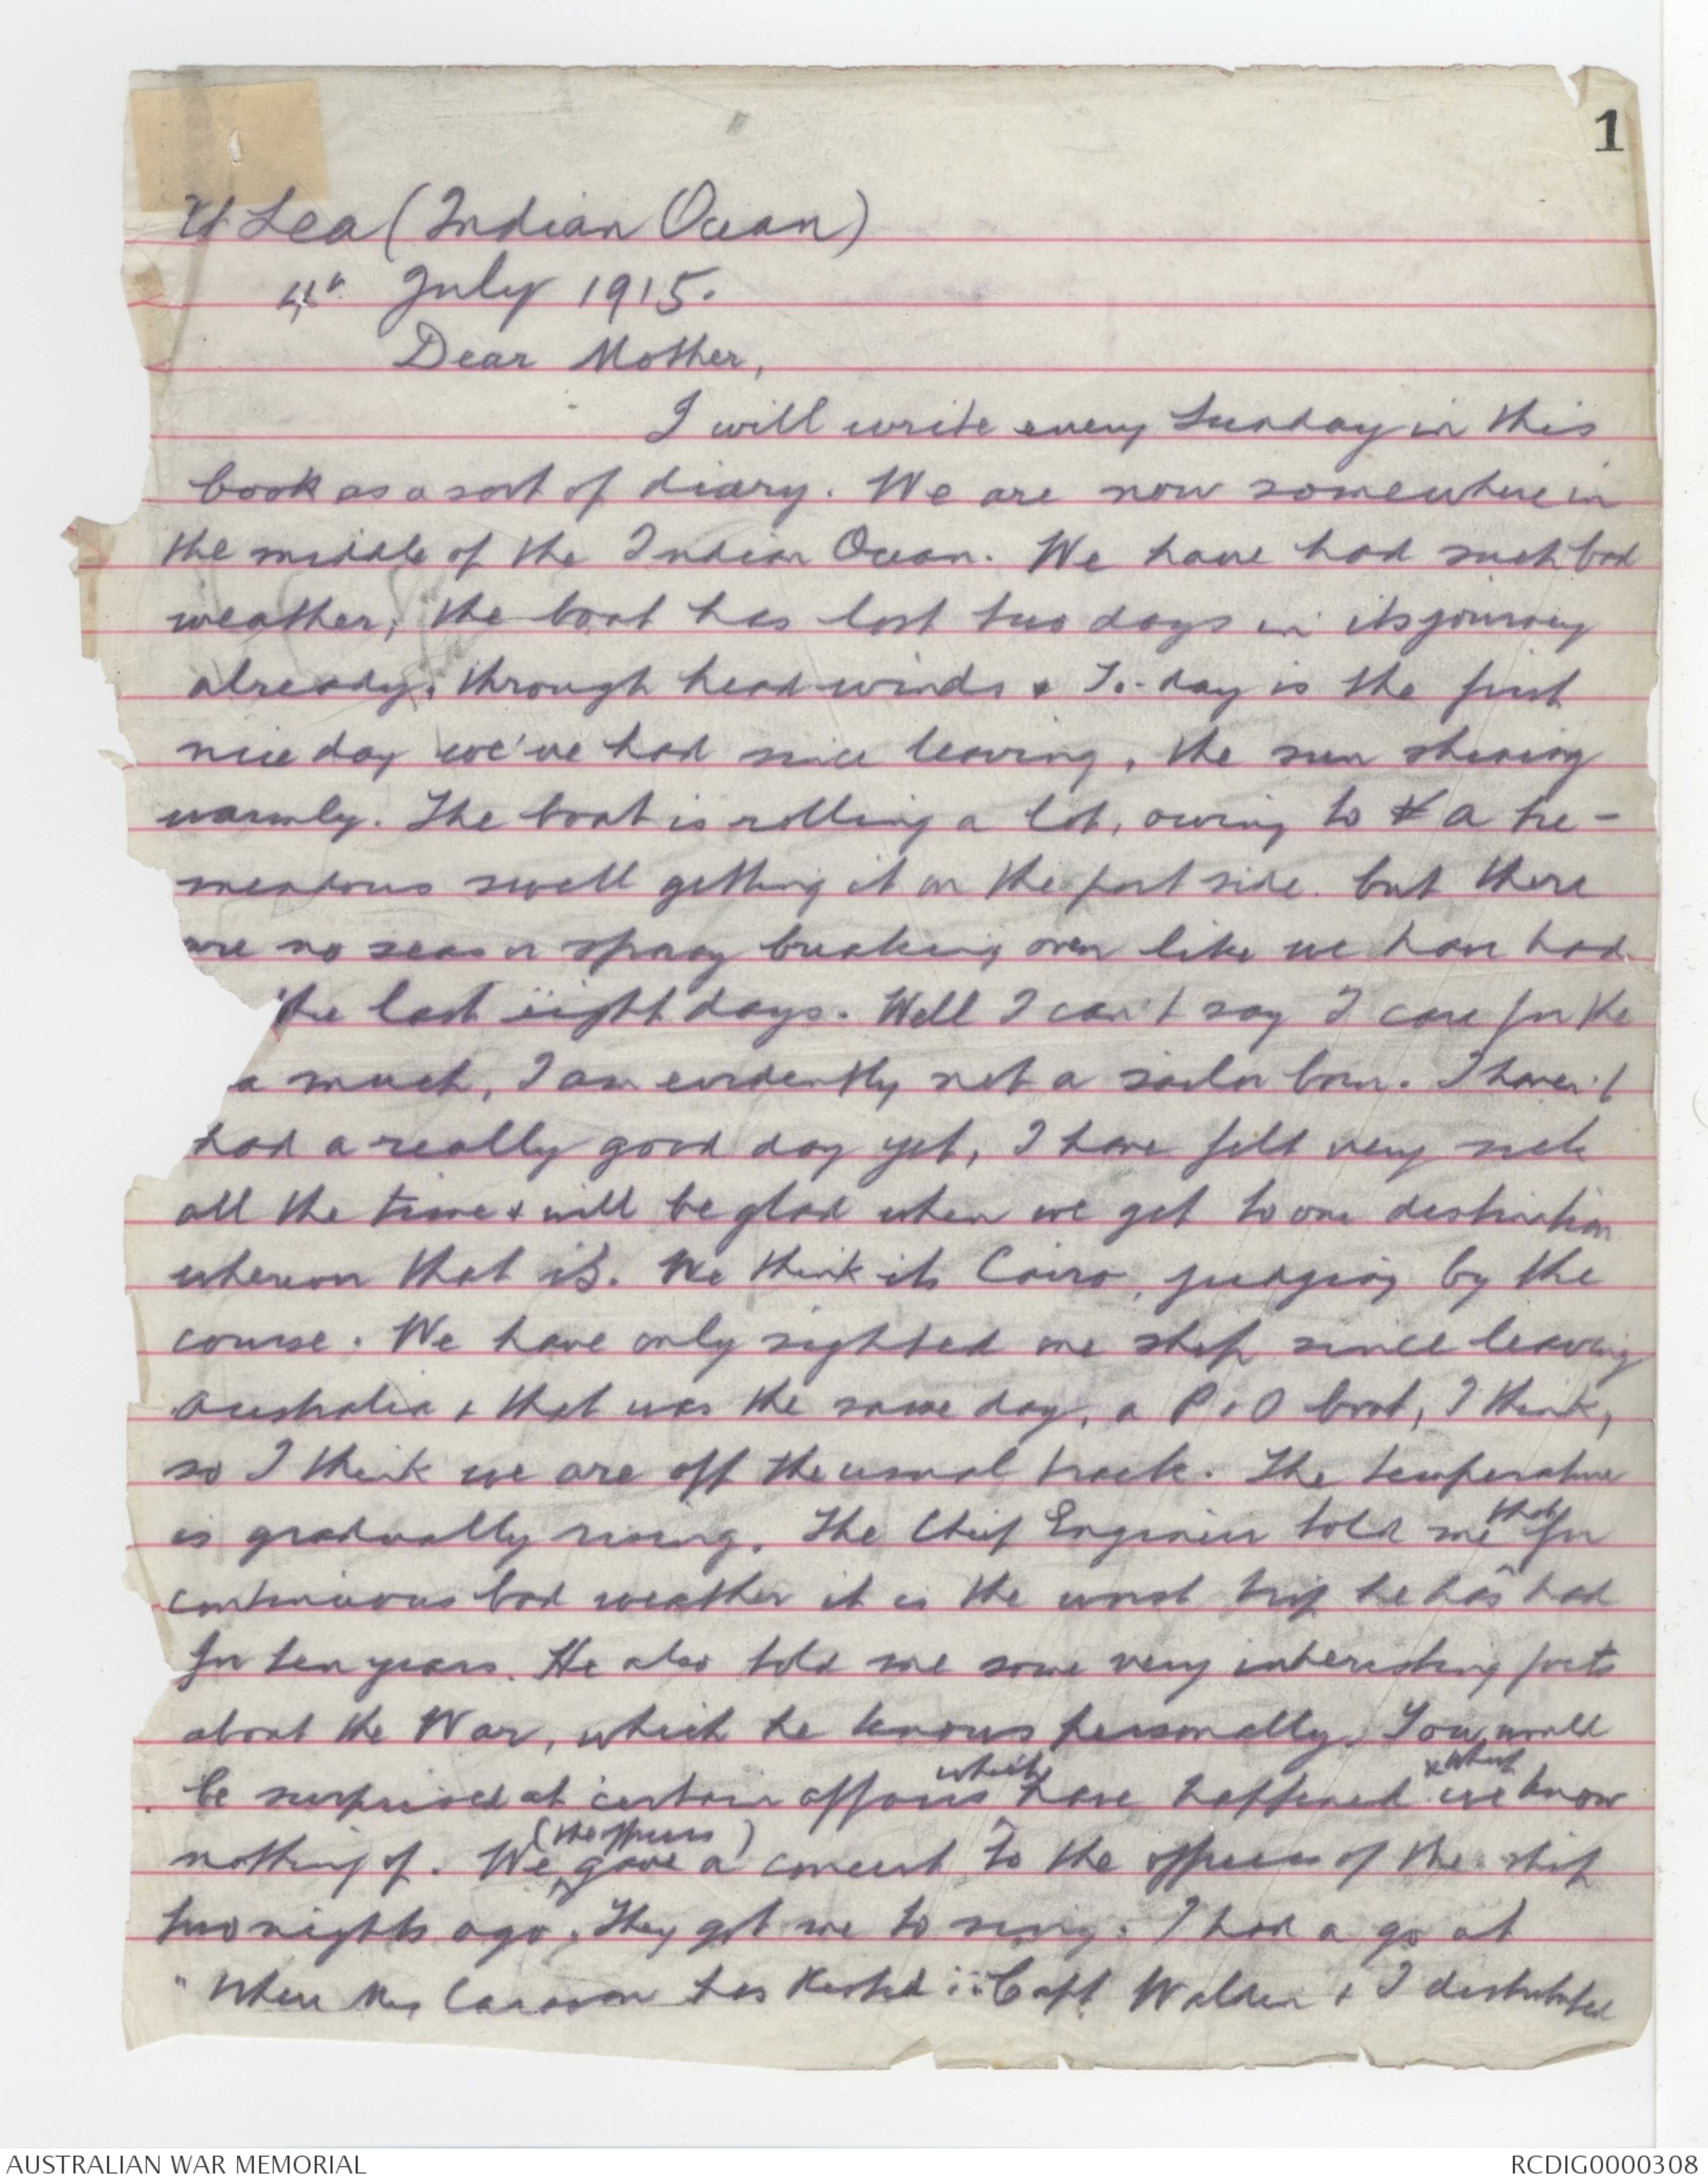 1
At Sea (Indian Ocean)
4th July 1915.
Dear Mother,
I will write every Sunday in this
book as a sort of diary. We are now somewhere in
the middle of the Indian Ocean. We have had such bad
weather, the boat has lost two days in its journey
already, through head winds & To-day is the first
nice day we've had since leaving, the sun shining
warmly. The boat is rolling a lot, owing to a tre-
mendous swell getting it on the port side. but there
are no seas or spray breaking over like we have had
the last eight days. Well I can't say I care for the
a much, I am evidently not a sailor born. I haven't
had a really good day yet, I have felt very sick
all the time & will be glad when we get to our destination
wherever that is. We think its Cairo, judging by the
course. We have only sighted one ship since leaving
Australia & that was the same day, a P & O boat, I think,
so I think we are off the usual track. The temperature
is gradually rising. The Chief Engineer told me that for
continuous bad weather it is the worst trip he has had
for ten years. He also told me some very interesting facts
about the War, which he knows personally. You would
be surprised at certain affairs which have happened & what we know
nothing of. We (the officers) gave a concert to the officers of the ship
two nights ago. They got me to sing. I had a go at
"When the Caravan has Rested". Capt. Walden & I distributed
AUSTRALIAN WAR MEMORIAL
RCDIG0000308